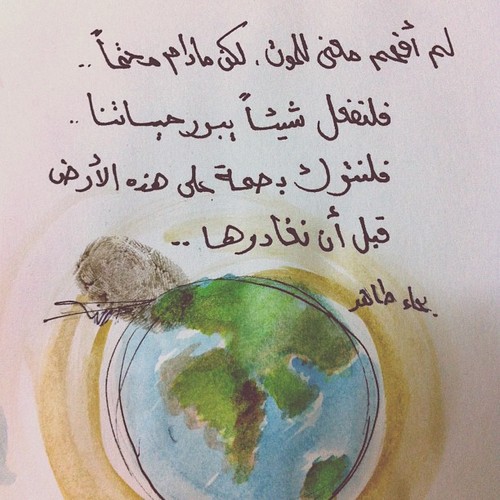 لم أفهم معنى للموت، لكن مادام محتماً ..
فلنفعل شيئاً يبرر حياتنا ..
فلنترك بصمة على هذه الأرض
قبل أن نغادرها ..
بهاء طاهر